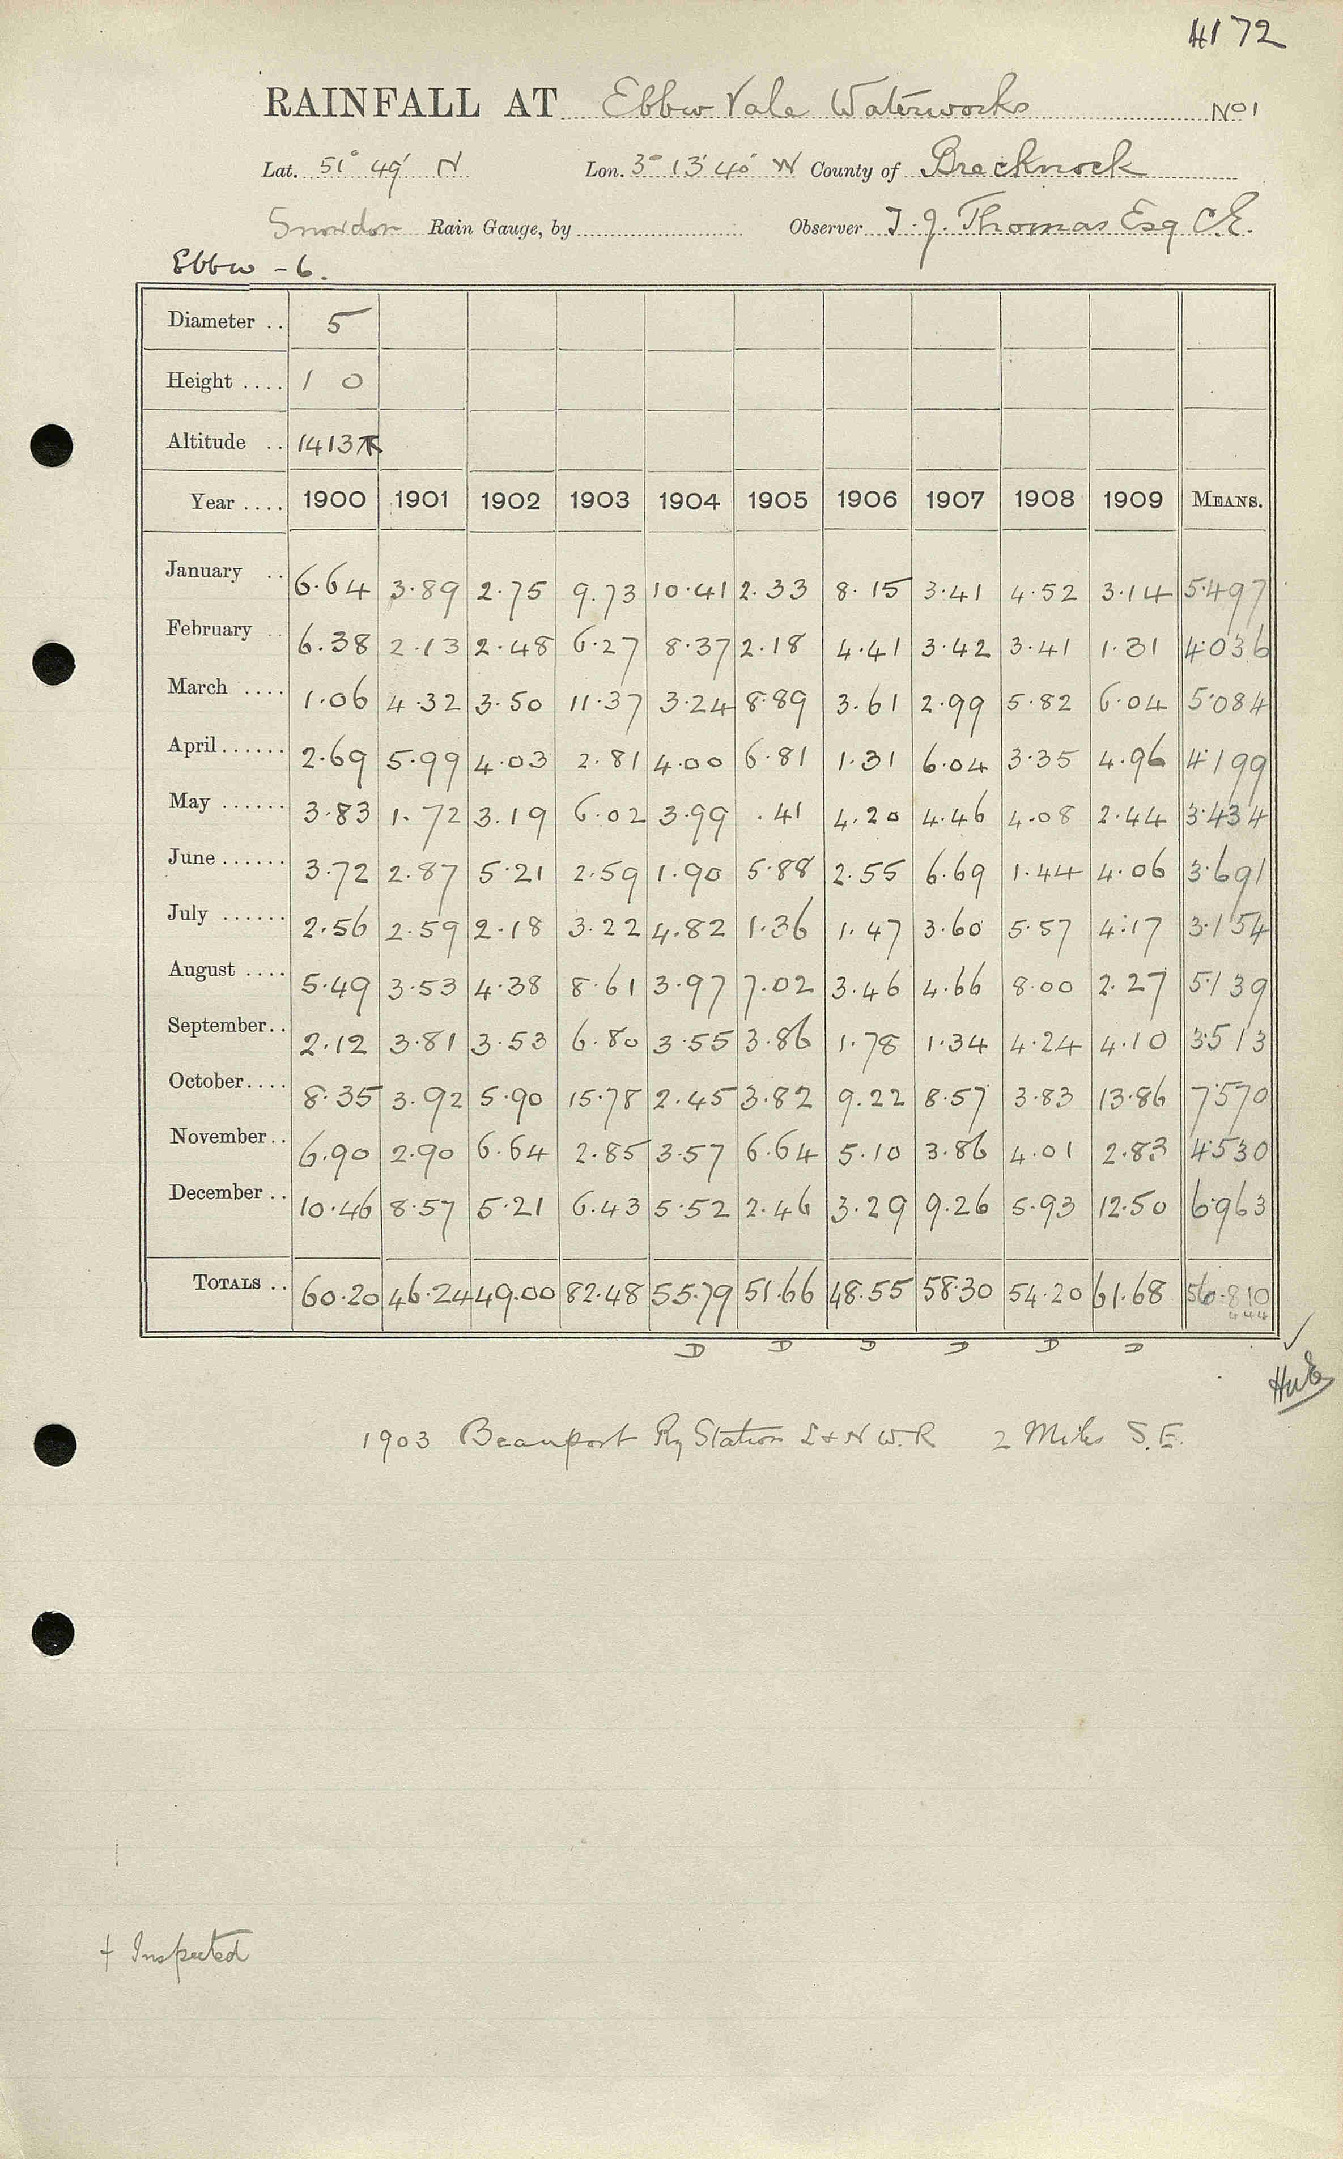 4172
RAINFALL AT Ebbw Vale Waterworks No 1
Lat. 51° 49' N Lon. 3° 13' 40" W County of Brecknock
Snowdon Rain Gauge, by Observer T. J. Thomas Esq C.E.
Ebbw - 6.
Diameter .. 5
Height .... 1 0
Altitude .. 1413
Year .... 1900 1901 1902 1903 1904 1905 1906 1907 1908 1909 MEANS.
January .. 6.64 3.89 2.75 9.73 10.41 2.33 8.15 3.41 4.52 3.14 5.497
February .. 6.38 2.13 2.48 6.27 8.37 2.18 4.41 3.42 3.41 1.31 4.036
March .... 1.06 4.32 3.50 11.37 3.24 8.89 3.61 2.99 5.82 6.04 5.084
April ...... 2.69 5.99 4.03 2.81 4.00 6.81 1.31 6.04 3.35 4.96 4.199
May ...... 3.83 1.72 3.19 6.02 3.99 .41 4.20 4.46 4.08 2.44 3.434
June ...... 3.72 2.87 5.21 2.59 1.90 5.88 2.55 6.69 1.44 4.06 3.691
July ...... 2.56 2.59 2.18 3.22 4.82 1.36 1.47 3.60 5.57 4.17 3.154
August .... 5.49 3.53 4.38 8.61 3.97 7.02 3.46 4.66 8.00 2.27 5.139
September .. 2.12 3.81 3.53 6.80 3.55 3.86 1.78 1.34 4.24 4.10 3.513
October .... 8.35 3.92 5.90 15.78 2.45 3.82 9.22 8.57 3.83 13.86 7.570
November .. 6.90 2.90 6.64 2.85 3.57 6.64 5.10 3.86 4.01 2.83 4.530
December .. 10.46 8.57 5.21 6.43 5.52 2.46 3.29 9.26 5.93 12.50 6.963
TOTALS .. 60.20 46.24 49.00 82.48 55.79 51.66 48.55 58.30 54.20 61.68 56.810
D D D D D D
1903 Beaufort Ry Station L & N W. R 2 Miles S.E.
† Inspected